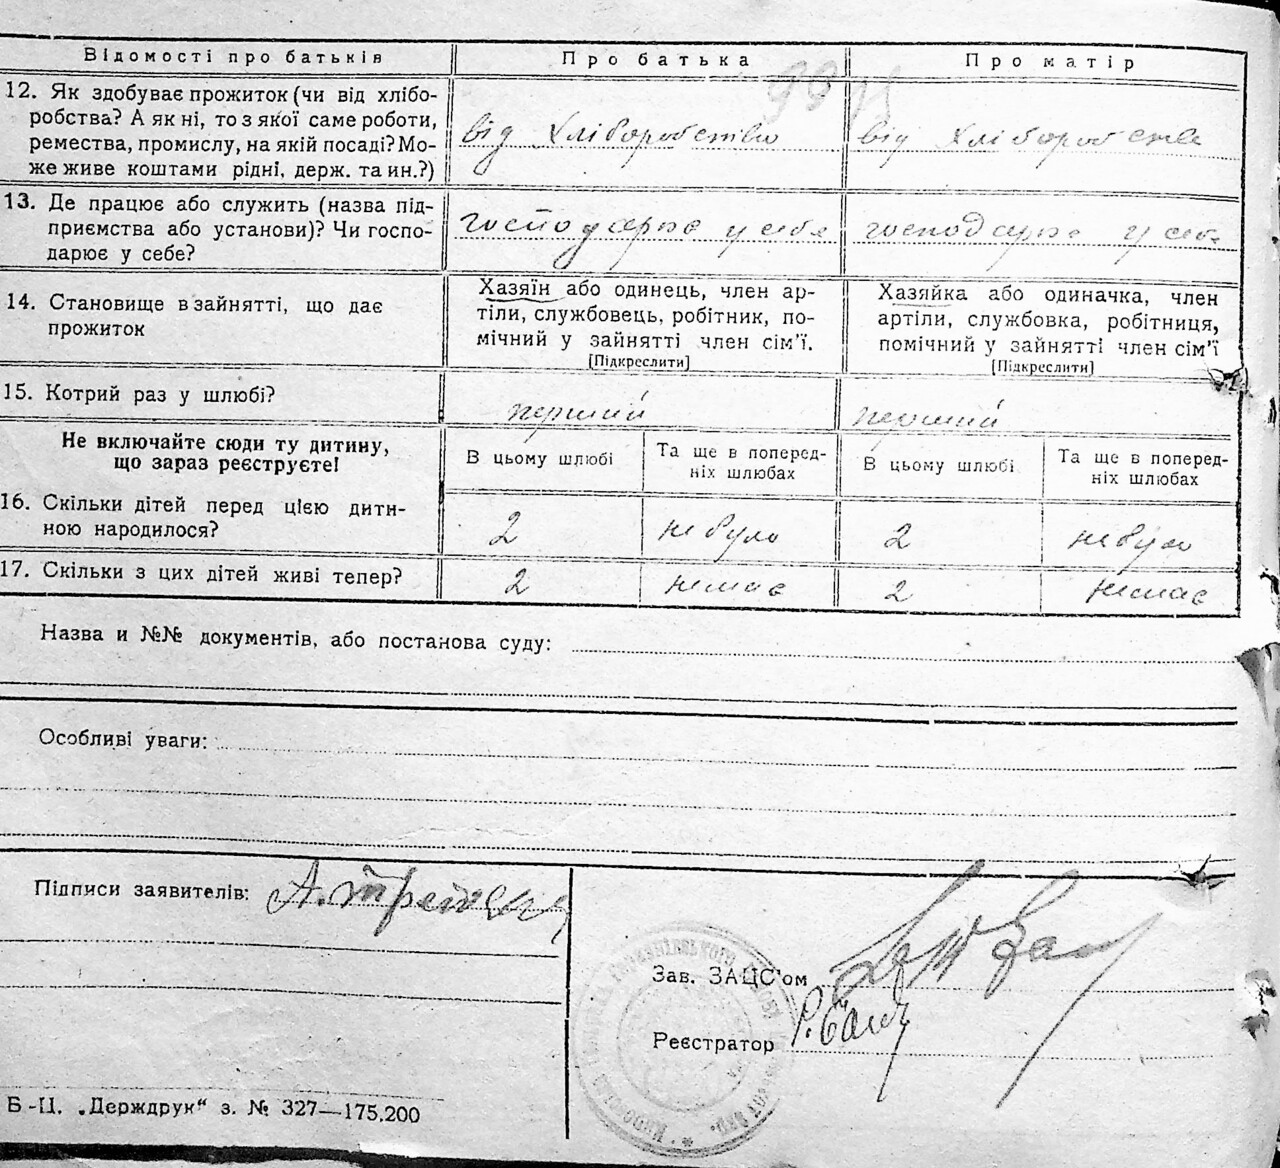 Відомості про батьків
Про батька
Про матір
12. Як здобуває прожиток (чи від хлібо-
робства? А як ні, то з якої саме роботи,
ремества, промислу, на якій посаді? Мо-
же живе коштами рідні, держ. та ин.?)
від хліборобства
від хліборобства
13. Де працює або служить (назва під-
приємства або установи)? Чи госпо-
дарює у себе?
господарює у себе
господарює у себе
14. Становище в зайнятті, що дає
прожиток
Хазяїн або одинець, член ар-
тіли, службовець, робітник, по-
мічний у зайнятті член сім'ї.
[Підкреслити]
Хазяйка або одиначка, член
артіли, службовка, робітниця,
помічний у зайнятті член сім'ї
[Підкреслити]
15. Котрий раз у шлюбі?
перший
перший
Не включайте сюди ту дитину,
що зараз реєструєте!
В цьому шлюбі
Та ще в поперед-
ніх шлюбах
В цьому шлюбі
Та ще в поперед-
ніх шлюбах
16. Скільки дітей перед цією дити-
ною народилося?
2
не було
2
не було
17. Скільки з цих дітей живі тепер?
2
немає
2
немає
Назва и №№ документів, або постанова суду:
Особливі уваги:
Підписи заявителів:
Зав. ЗАЦС'ом
Реєстратор
Б-Ц. „Держдрук“ з. № 327—175.200